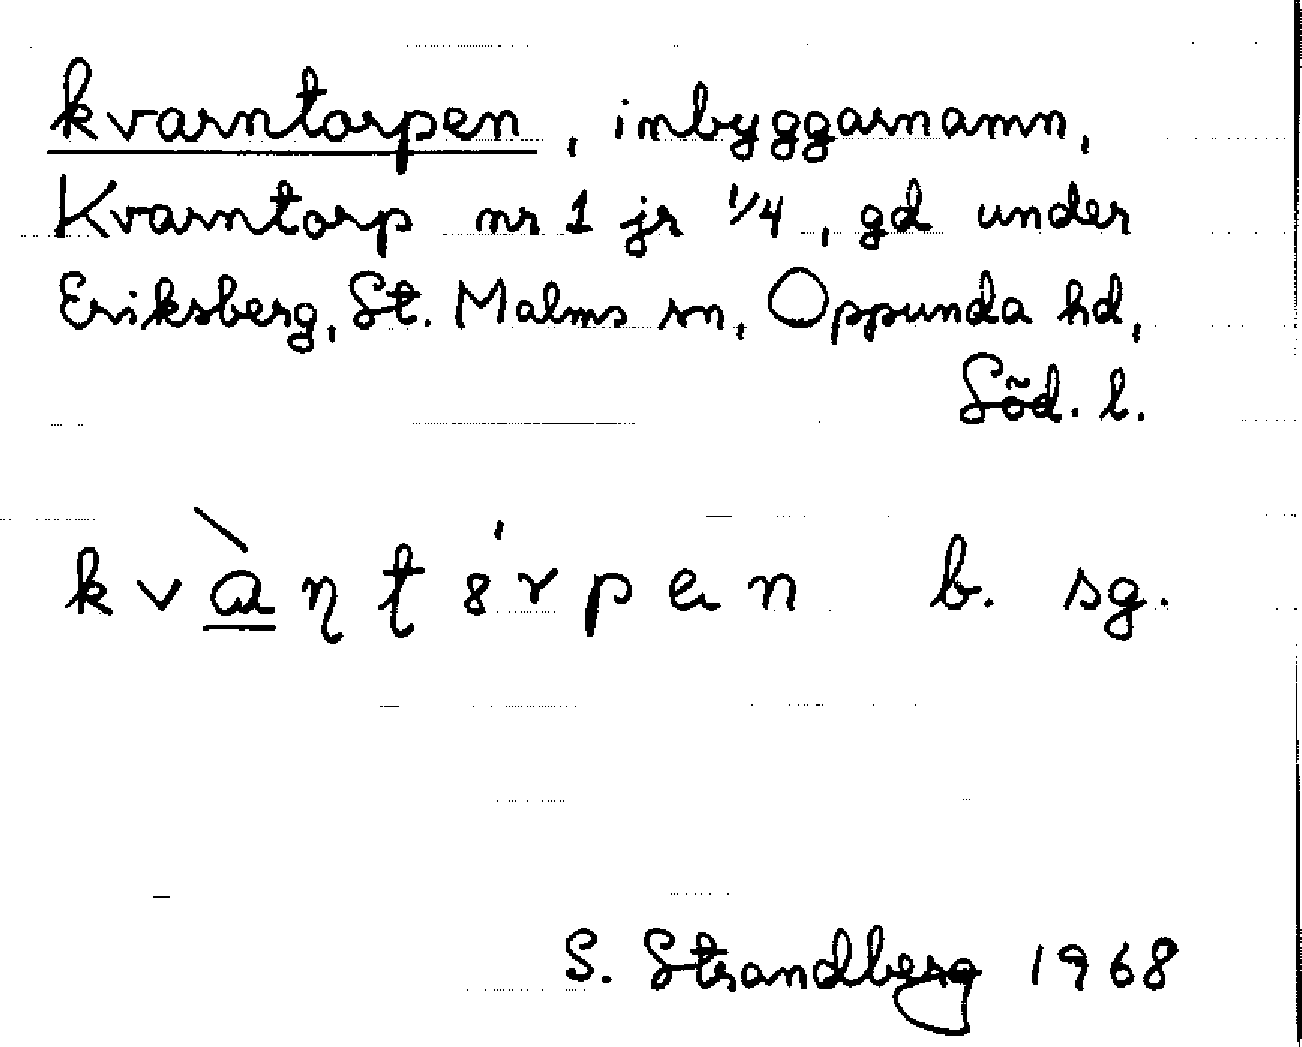 kvarntorpen, inbyggarnamn,
Kvarntorp nr 1 jr 1/4, gd under
Eriksberg, St. Malms sn, Oppunda hd,
Söd. l.
kvàɳʈ8́rpen b. sg.
S. Strandberg 1968